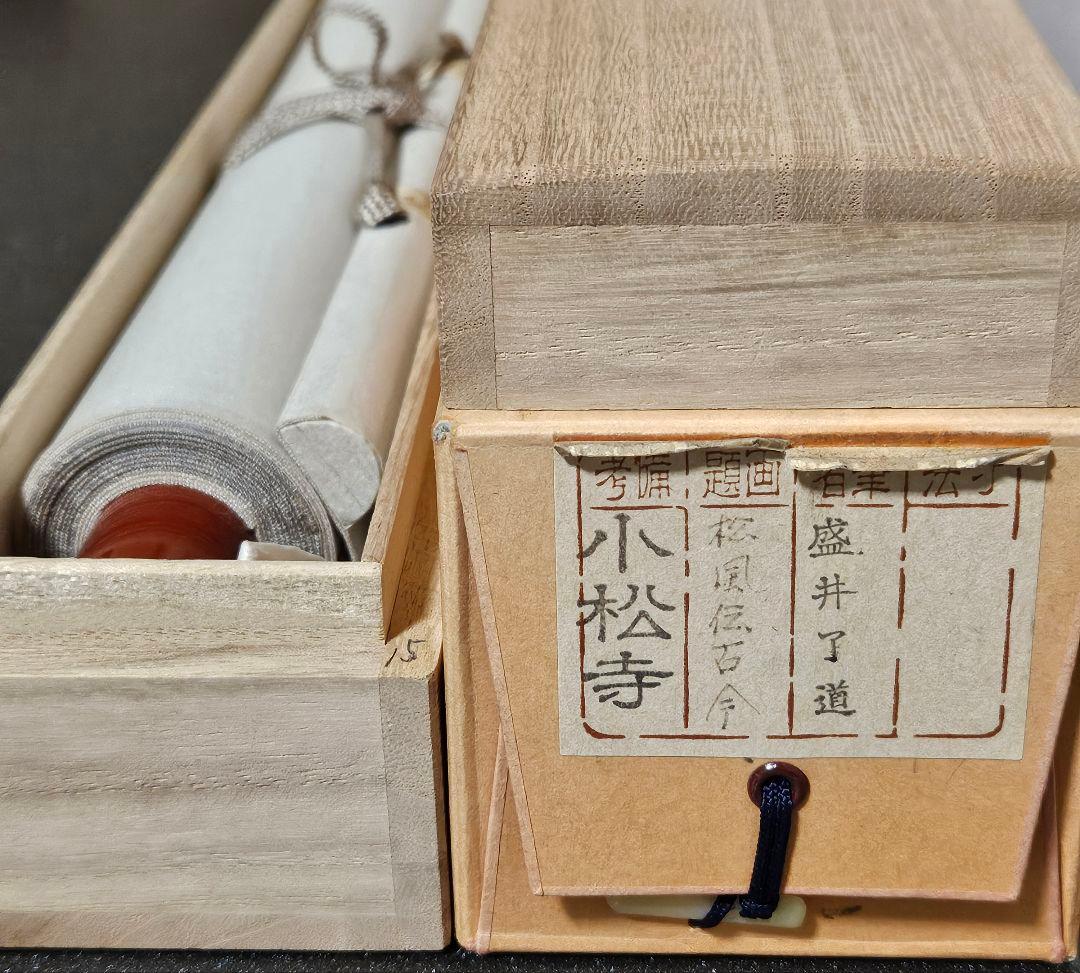 寸法
筆者
盛井了道
画題
松風伝古今
備考
小松寺
15